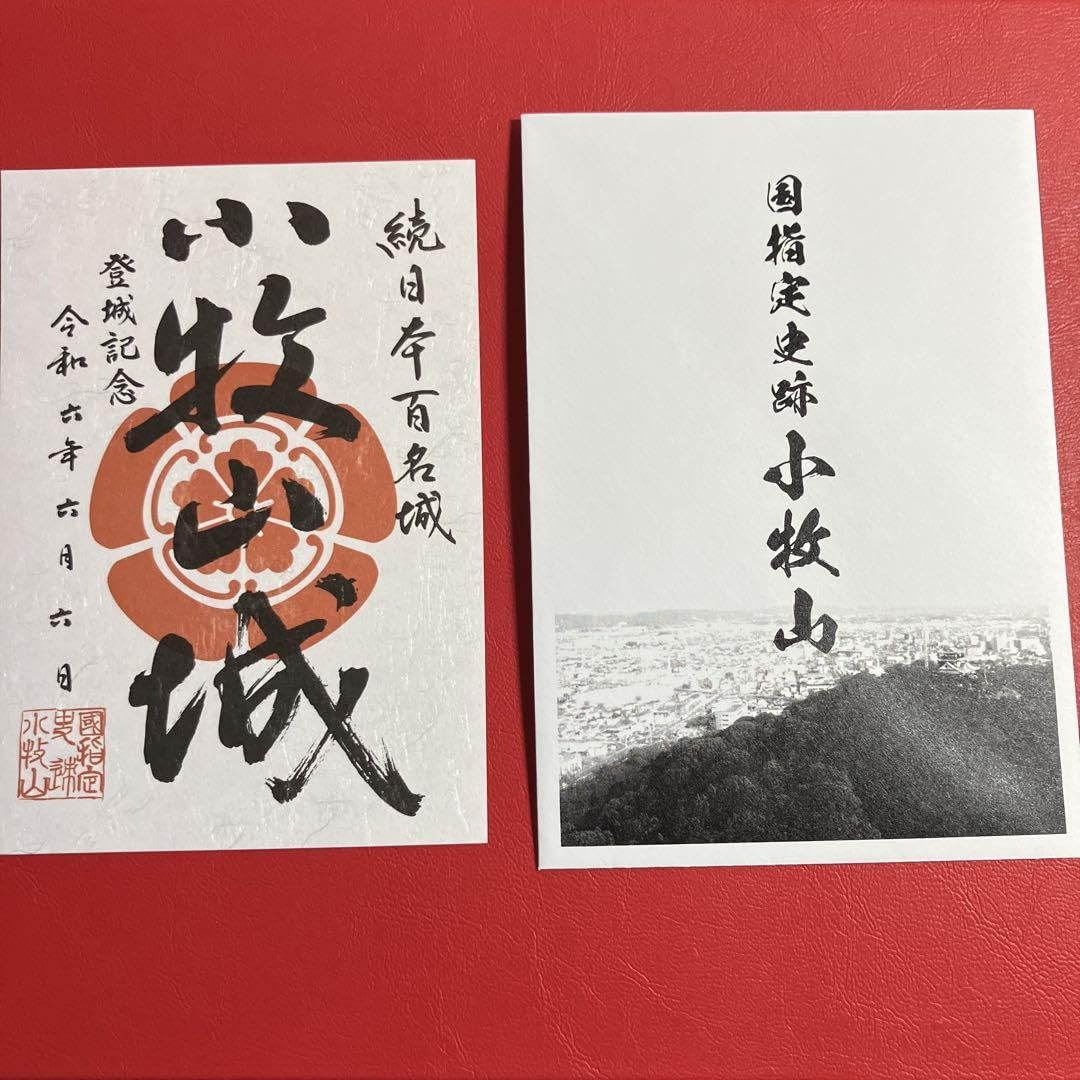 続日本百名城
小牧山城
登城記念
令和六年六月六日
國指定
史跡
小牧山
国指定史跡小牧山